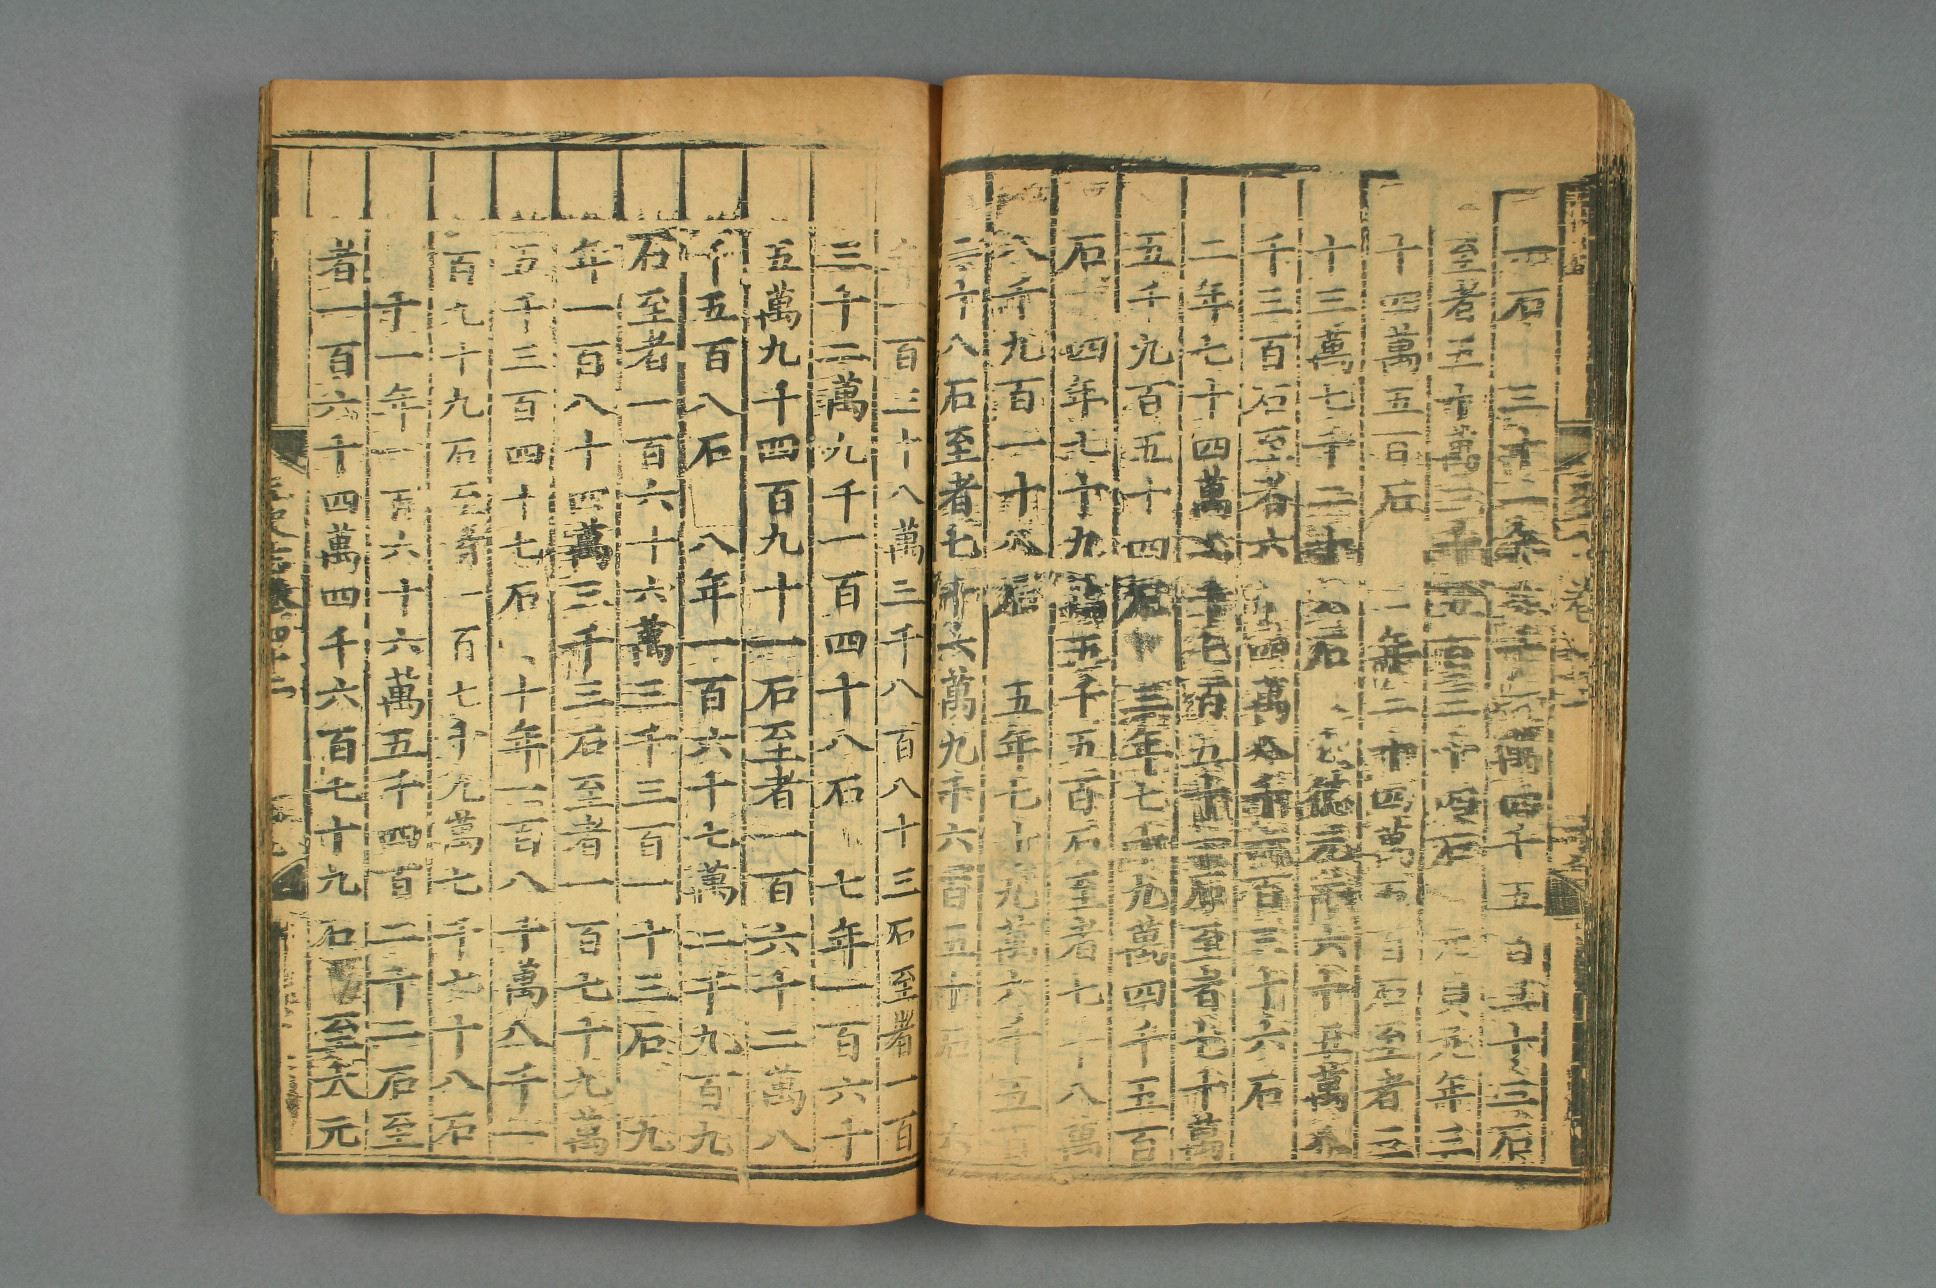 一石 三十一年五十一萬四千五百三十三石
至者五十萬三千五百三十四石 元貞元年三
十四萬五百石 二年三十四萬五百石至者三
十三萬七千二十六石 大德元年六十五萬八
千三百石至者六十四萬八千一百三十六石
二年七十四萬二千七百五十一石至者七十萬
五千九百五十四石 三年七十九萬四千五百
石 四年七十九萬五千五百石至者七十八萬
八千九百一十八石 五年七十九萬六千五百
二十八石至者七十六萬九千六百五十石 六
年一百三十八萬三千八百八十三石至者一百
三十二萬九千一百四十八石 七年一百六十
五萬九千四百九十一石至者一百六十二萬八
千五百八石 八年一百六十七萬二千九百九
石至者一百六十六萬三千三百一十三石 九
年一百八十四萬三千三石至者一百七十九萬
五千三百四十七石 十年一百八十萬八千一
百九十九石至者一百七十九萬七千七十八石
十一年一百六十六萬五千四百二十二石至
者一百六十四萬四千六百七十九石 至大元
元史志卷四十二